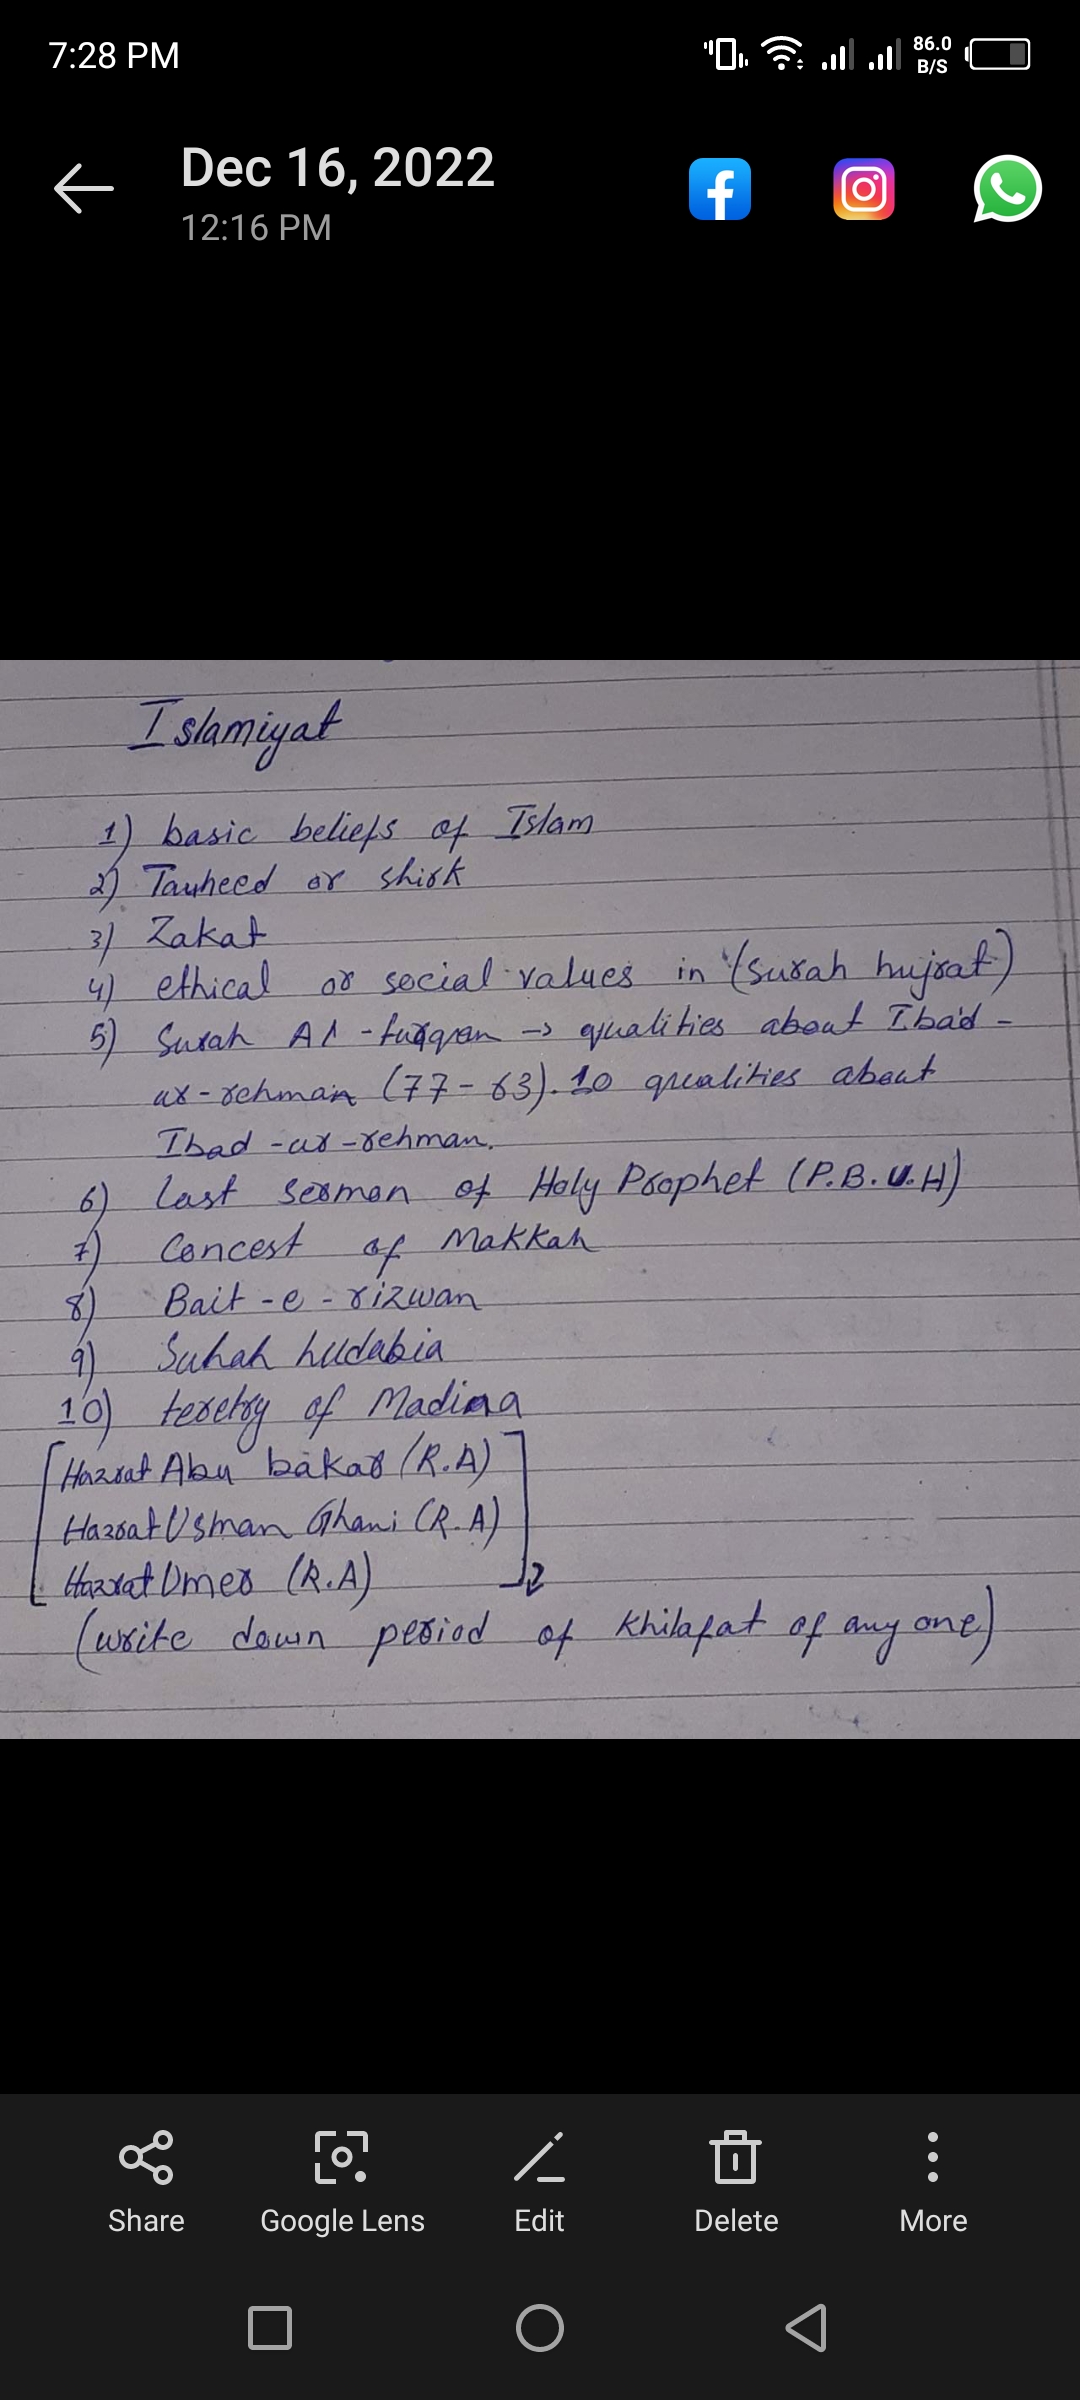 7:28 PM
86.0
B/S
Dec 16, 2022
12:16 PM
Islamiyat
1) basic beliefs of Islam
2) Tauheed or shirk
3) Zakat
4) ethical or social values in (surah hujrat)
5) Surah Al-furqan → qualities about Ibad-
ur-rehman (77-63). 10 qualities about
Ibad-ur-rehman.
6) last sermon of Holy Prophet (P.B.U.H)
7) Concest of Makkah
8) Bait-e-rizwan
9) Suhah hudabia
10) teretry of Madina
Hazrat Abu bakar (R.A)
Hazrat Usman Ghani (R.A)
Hazrat Umer (R.A)
(write down period of Khilafat of any one)
Share
Google Lens
Edit
Delete
More